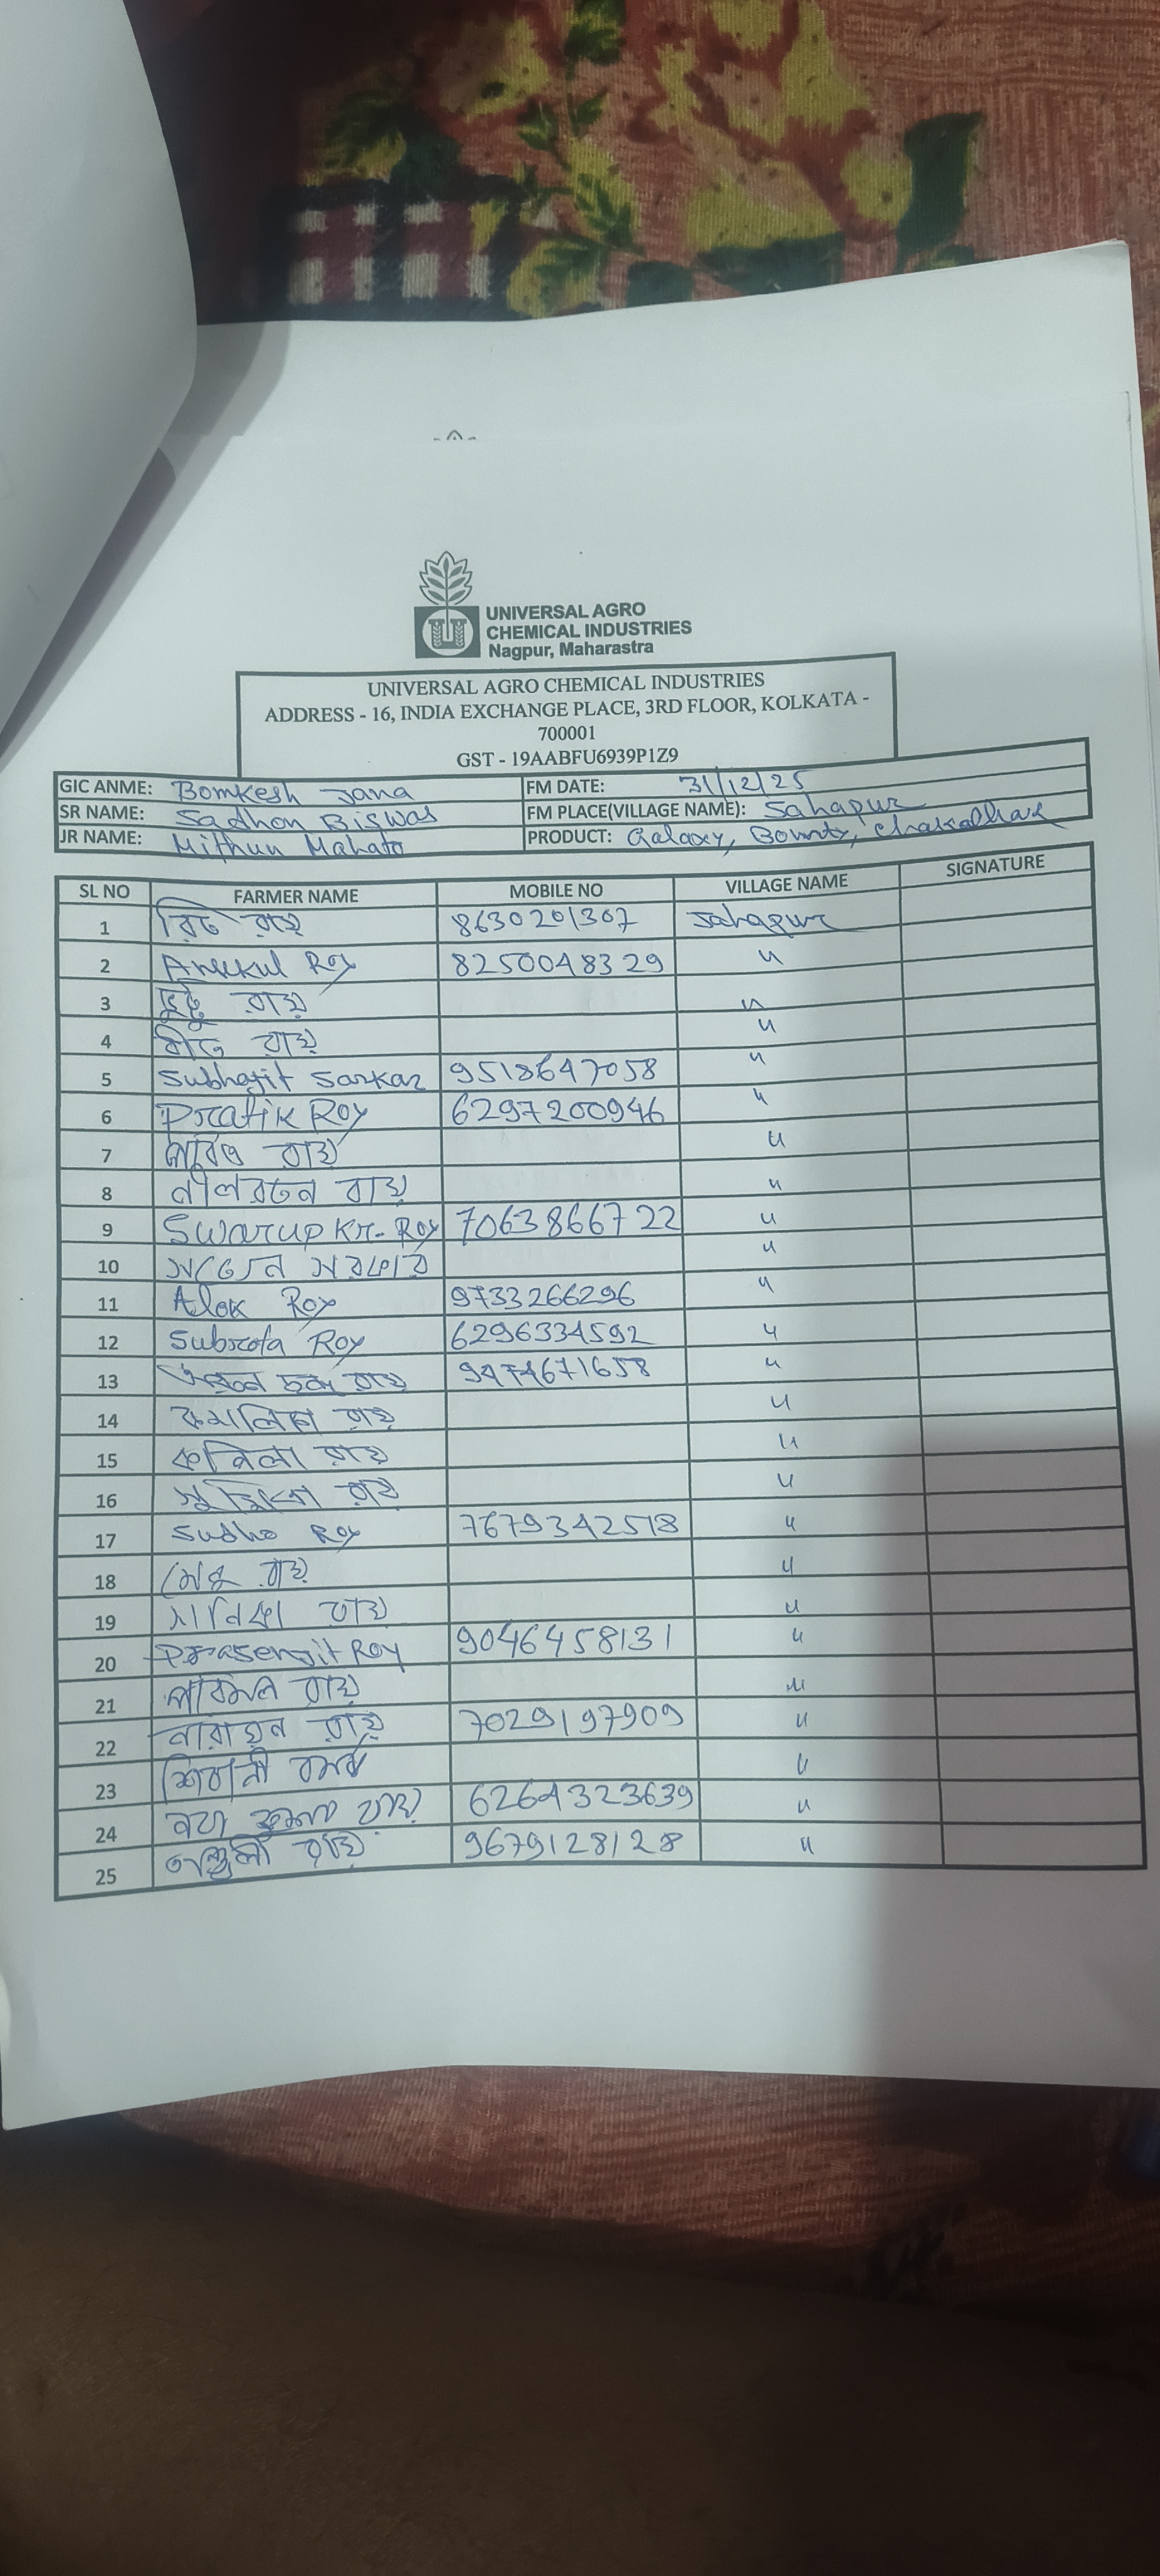 UNIVERSAL AGRO
CHEMICAL INDUSTRIES
Nagpur, Maharastra
UNIVERSAL AGRO CHEMICAL INDUSTRIES
ADDRESS - 16, INDIA EXCHANGE PLACE, 3RD FLOOR, KOLKATA -
700001
GST - 19AABFU6939P1Z9
GIC ANME: Bomkesh Jana FM DATE: 31/12/25
SR NAME: Sadhon Biswas FM PLACE(VILLAGE NAME): Sahapur
JR NAME: Mithun Mahato PRODUCT: Galaxy, Bounty,
SL NO FARMER NAME MOBILE NO VILLAGE NAME SIGNATURE
1 রায় 8630201307 Sahapur
2 Anukul Roy 8250048329 "
3 রায় "
4 রায় "
5 Subhajit Sarkar 9518647058 "
6 Pratik Roy 6297200946 "
7 রায় "
8 নীলরতন রায় "
9 Swarup Kr. Roy 7063866722 "
10 সরকার "
11 Alok Roy 9733266296 "
12 Subrota Roy 6296334592 "
13 চন্দ্র রায় 9474671658 "
14 রায় "
15 রায় "
16 রায় "
17 Sudho Roy 7679342518 "
18 রায় "
19 রায় "
20 Prasenjit Roy 9046458131 "
21 রায় "
22 নারায়ন রায় 7029197909 "
23 শিবানী বর্মন "
24 রায় 6264323639 "
25 রায় 9679128128 "